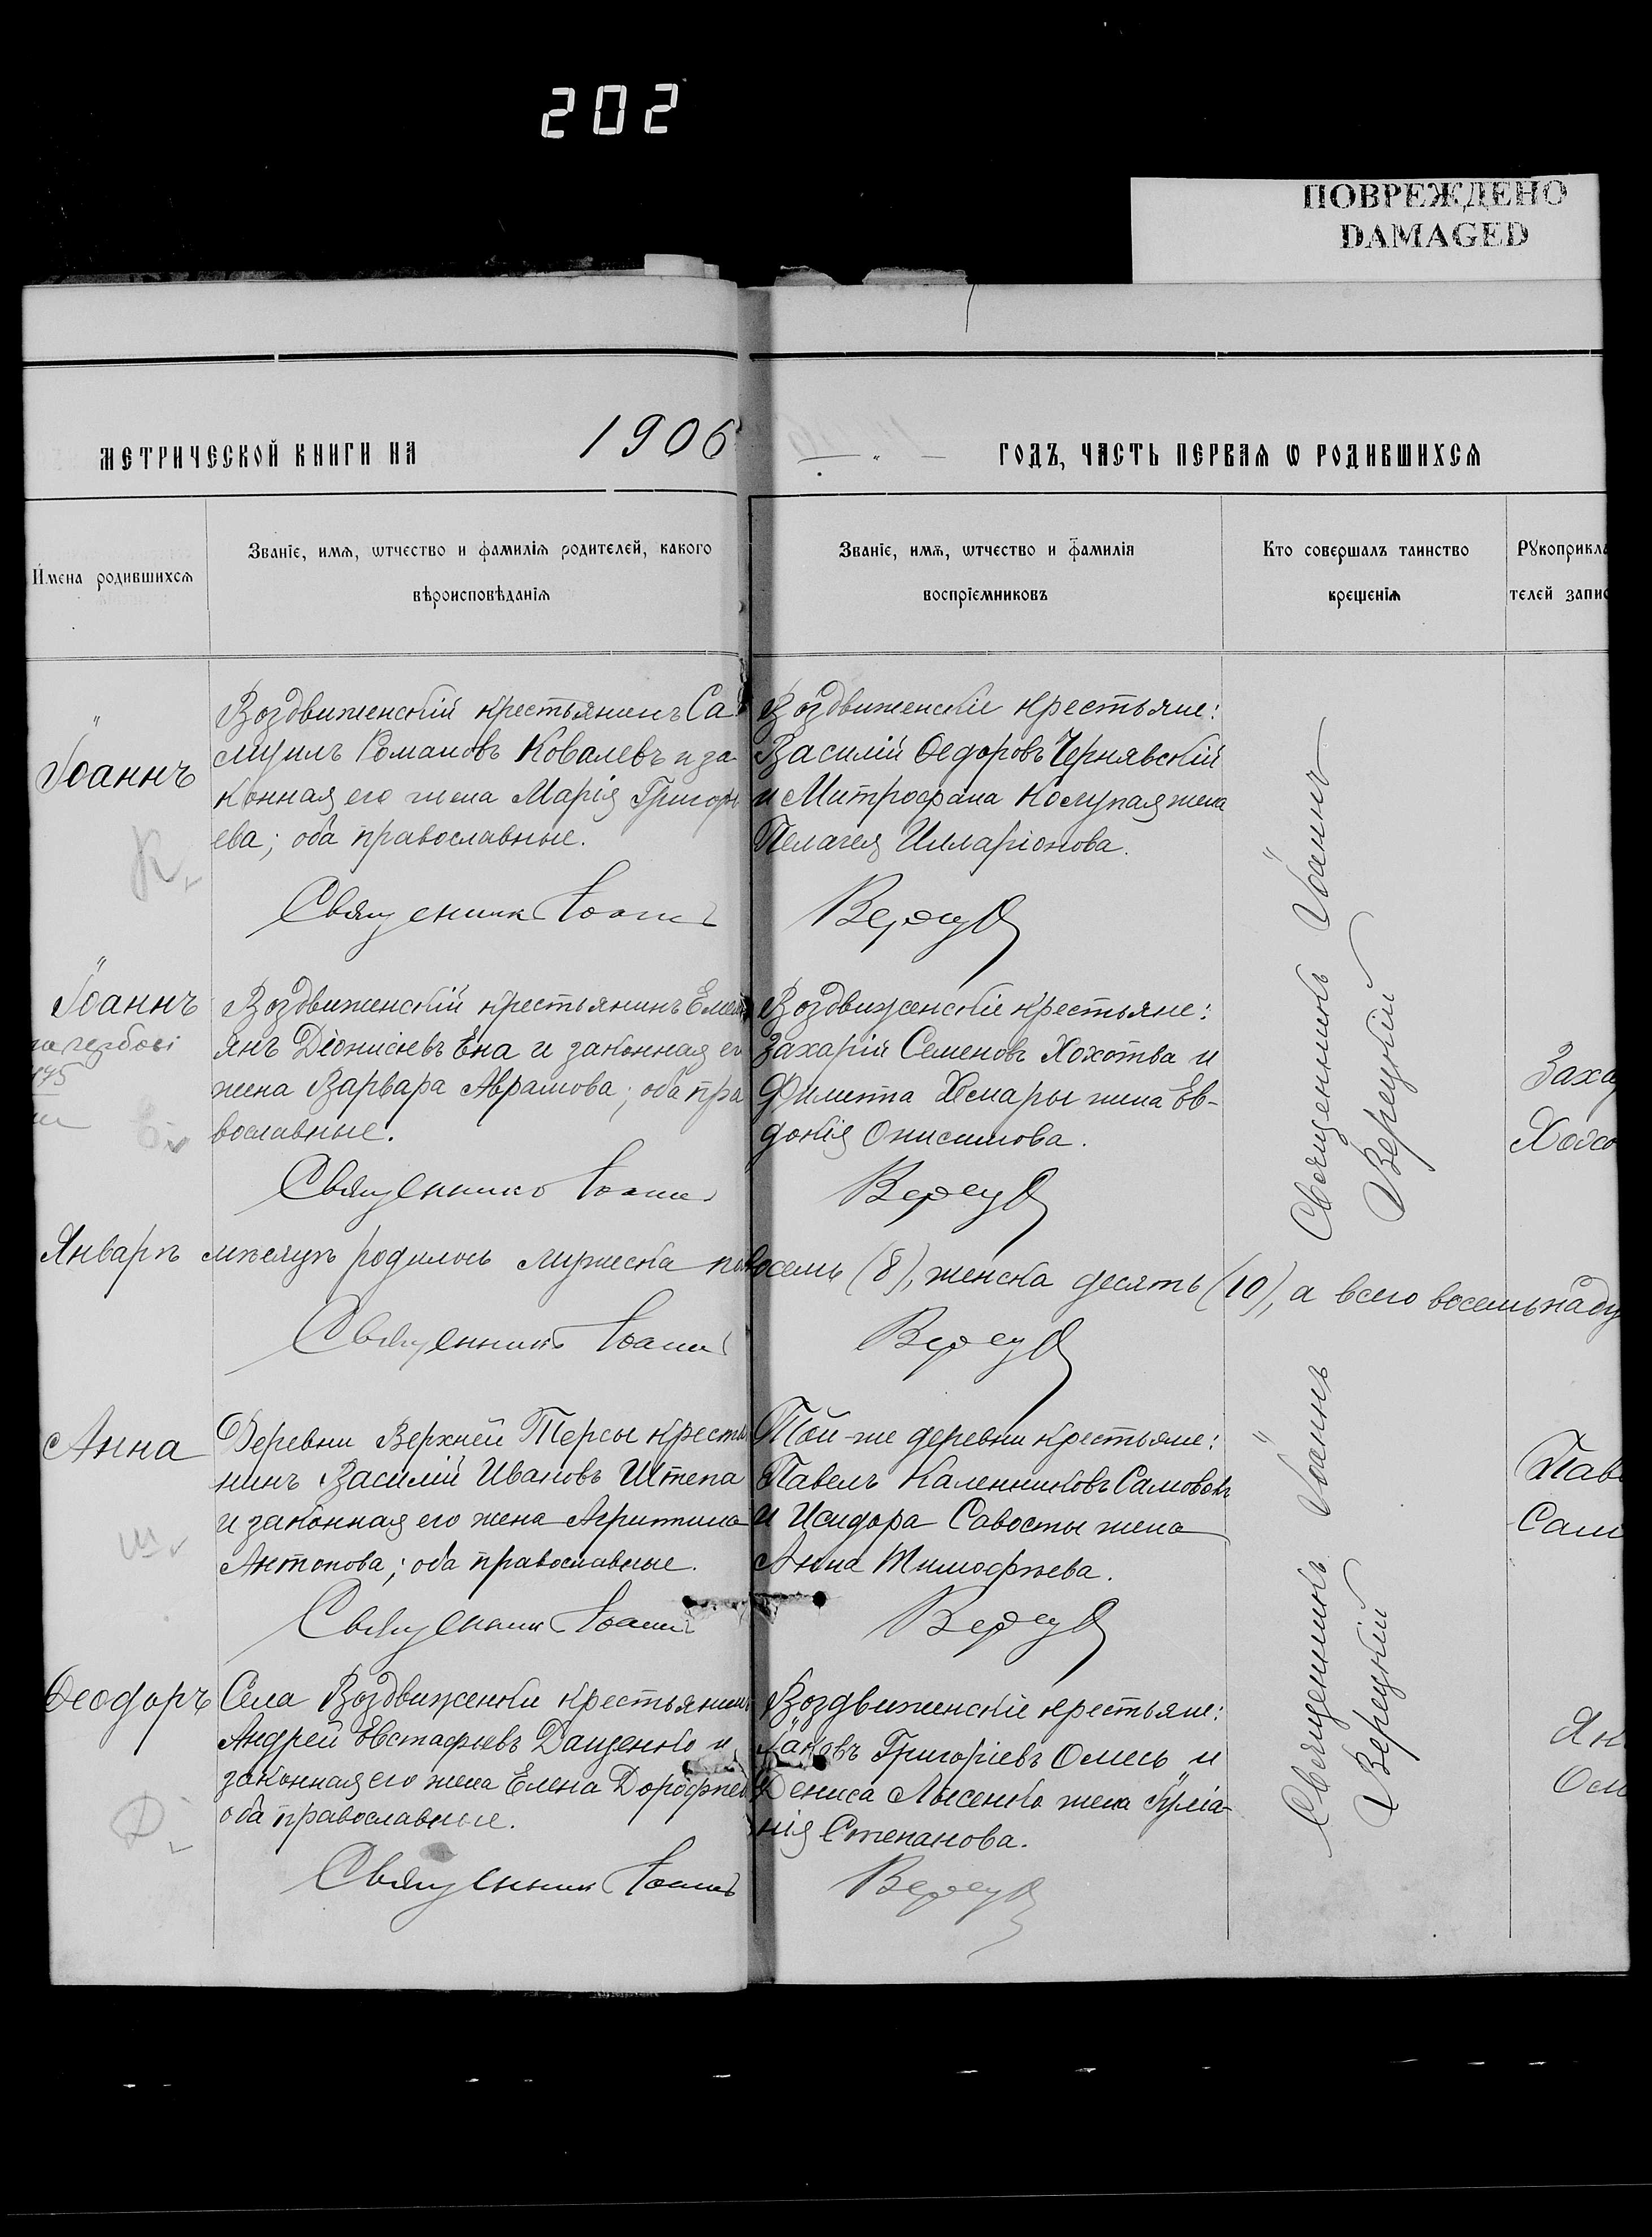 202
ПОВРЕЖДЕНО
DAMAGED
МЕТРИЧЕСКОЙ КНИГИ НА 1906 ГОДЪ, ЧАСТЬ ПЕРВАЯ Ѡ РОДИВШИХСЯ
Имена родившихсѧ
Званїе, имѧ, ѿтчество и фамилїѧ родителей, какого
вѣроисповѣданїѧ
Званїе, имѧ, ѿтчество и фамилїѧ
воспрїемниковъ
Кто совершалъ таинство
крещенїѧ
Рꙋкоприкла
телей запис
Іоаннъ
Воздвиженскій крестьянинъ Са
муилъ Романовъ Ковалевъ и за-
конная его жена Марія Григорь
ева; оба православные.
Воздвиженскіе крестьяне:
Василій Ѳедоровъ Чернявскій
и Митрофана Колупая жена
Пелагея Илларіонова.
Священникъ Іоаннъ Верецкій
Священникъ Іоаннъ
Іоаннъ
Воздвиженскій крестьянинъ Емель
янъ Діонисіевъ Ена и законная ег
жена Варвара Аврамова; оба пра
вославные.
Воздвиженскіе крестьяне:
Захарій Семеновъ Хохотва и
Филиппа Хмары жена Ев-
докія Онисимова.
Заха
Священникъ Іоаннъ
Январѣ мѣсяцѣ родилось мужеска пола восемь (8), женска десять (10), а всего восемьнадц
Священникъ Іоаннъ
Анна
Деревни Верхней Терсы кресть
нинъ Василій Ивановъ Штепа
и законная его жена Агриппина
Антонова; оба православные.
Той-же деревни крестьяне:
Павелъ Каленниковъ Самовол
и Исидора Савосты жена
Анна Тимофѣева.
Священникъ Іоаннъ Верецкій
Паве
Сам
Священникъ Іоаннъ
Ѳеодоръ
Села Воздвиженки крестьянинъ
Андрей Евстафіевъ Даценко и
законная его жена Елена Дорофѣев
оба православные.
Воздвиженскіе крестьяне:
Іаковъ Григоріевъ Олесь и
Дениса Лысенко жена Іуліа-
нія Степанова.
Як
Священникъ Іоаннъ